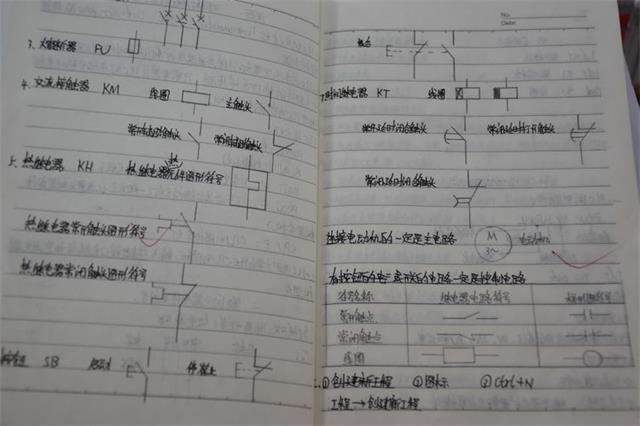 3、熔断器 FU
4、交流接触器 KM 线圈 主触头
常开辅助触头 常闭辅助触头
5、热继电器 KH 热继电器元件图形符号
热继电器常开触头图形符号
热继电器常闭触头图形符号
按钮 SB 启动 停止
No.
Date:
复合
7、时间继电器 KT 线圈
常开延时闭合触头 常闭延时打开触头
常闭延时闭合触头
连接电动机的一定是主电路 M 3~ 电动机
符号名称 继电器电路符号 梯形图符号
常开触点
常闭触点
线圈
①创建新工程 ①图标 ②Ctrl+N
工程→创建新工程